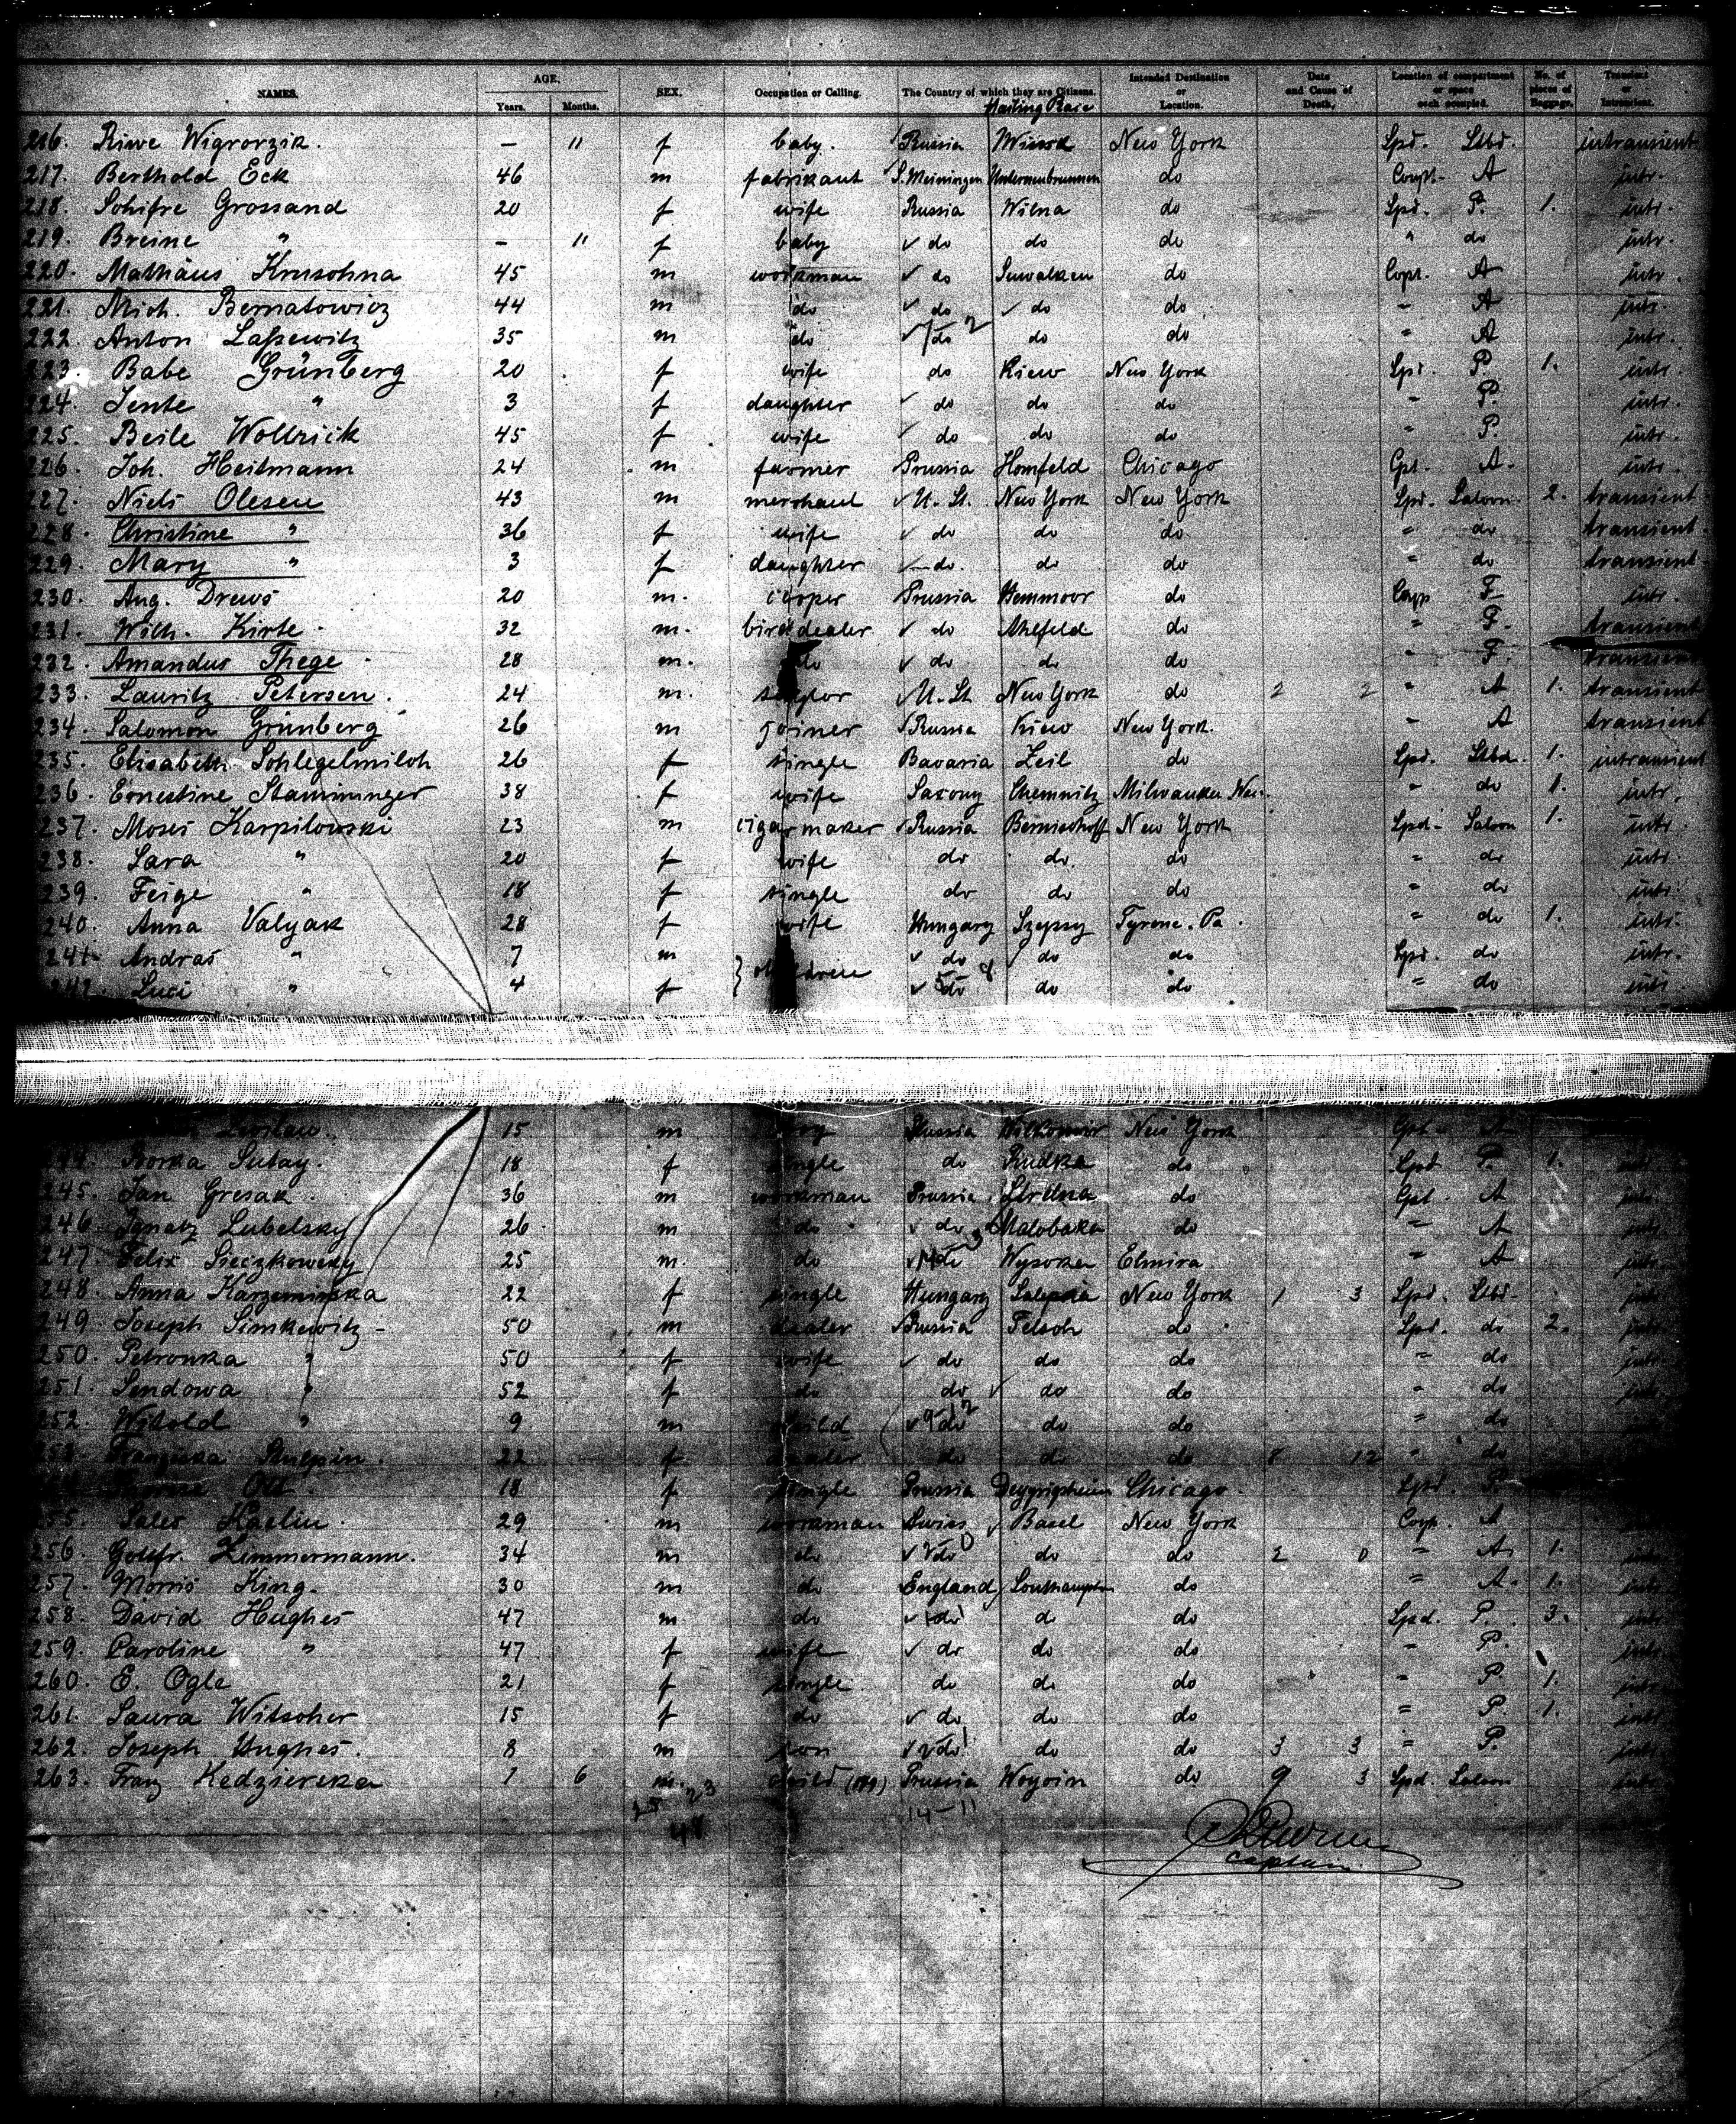 NAMES. AGE. Years. Months. SEX. Occupation or Calling. The Country of which they are Citizens. Intended Destination or Location. Date and Cause of Death. Location of compartment or space each occupied. No. of pieces of Baggage. Transient or Intransient.
216. Riwe Wigrorzik. — 11 f baby. Russia Minsk New York Spd. Stbd. intransient
217. Berthold Eck 46 m fabrikant S. Meiningen do Compt. A intr.
218. Schifre Grossand 20 f wife Russia Wilna do Spd. P. 1. intr.
219. Breine " — 11 f baby do do do " do intr.
220. Mathäus Krusohna 45 m workman do Suwalken do Copt. A intr.
221. Mich. Bernatowicz 44 m do do do do " A intr.
222. Anton Laßewitz 35 m do do do do " A intr.
223. Babe Grünberg 20 f wife do Kiew New York Spd. P. 1. intr.
224. Jente " 3 f daughter do do do " P. intr.
225. Beile Wollrick 45 f wife do do do " P. intr.
226. Joh. Heitmann 24 m farmer Prussia Homfeld Chicago Cpt. A. intr.
227. Niels Olesen 43 m merchant U. St. New York New York Spd. Saloon. 2. transient
228. Christine " 36 f wife do do do " do transient
229. Mary " 3 f daughter do do do " do transient
230. Aug. Drews 20 m. cooper Prussia Hemmoor do Comp F intr.
231. Wilh. Kirte 32 m. bird dealer do Ahlfeld do " F. transient
232. Amandus Thege 28 m. do do do do " F. transient
233. Lauritz Petersen. 24 m. U. St New York do 2 2 " A 1. transient
234. Salomon Grünberg 26 m joiner Russia Kiew New York. " A transient
235. Elisabeth Schlegelmilch 26 f single Bavaria Zeil do Spd. Stbd. 1. intransient
236. Ernestine Stamminger 38 f wife Saxony Chemnitz Milwaukee Wis. " do 1. intr.
237. Moses Karpilowski 23 m cigar maker Russia Bernischoff New York Spd. Saloon 1. intr.
238. Sara " 20 f wife do do. do " do intr.
239. Feige " 18 f single do do do " do intr.
240. Anna Valyak 28 f wife Hungary Szepsy Tyrone. Pa. " do 1. intr.
241. Andras " 7 m children do do do Spd. do intr.
242. Luci " 4 f do do do " do intr.
15 m Russia New York Cpt. A
Borka Sutay. 18 f single do Rudka do Spd P. 1. intr
245. Jan Gresak 36 m workman Prussia Strelna do Cpt. A intr
246. Ignatz Lubelsky 26 m do do Malobaka do " A intr
247. Felix Sieczkowsky 25 m. do do Wysoka Elmira " A intr
248. Anna Karzeminska 22 f single Hungary New York 1 3 Spd. Stbd. intr
249. Joseph Simkewitz 50 m dealer Russia Telsch do Spd. do 2. intr
250. Petronka " 50 f wife do do do " do intr
251. Sendowa " 52 f do do do do " do intr
252. Witold " 9 m child do do do " do
253. Franziska 22 f dealer do do do 8 12 " do
18 f single Prussia Chicago. Spd. P.
255. Haelin 29 m workman Swiss Basel New York Comp. A
256. Gottfr. Zimmermann. 34 m do do do do 2 0 " A 1. intr
257. Morris King. 30 m do England Southampton do " A. 1. intr
258. David Hughes 47 m do do do do Spd. P. 3. intr
259. Caroline " 47 f wife do do do " P. intr
260. E. Ogle 21 f single do do do " P. 1. intr
261. Laura Witscher 15 f do do do do " P. 1. intr
262. Joseph Hughes. 8 m son do do do 3 3 " P. intr
263. Franz Kedzierska 1 6 m. child Prussia Woyoin do 9 3 Spd. Saloon intr
25 23 14-11
48
Captain